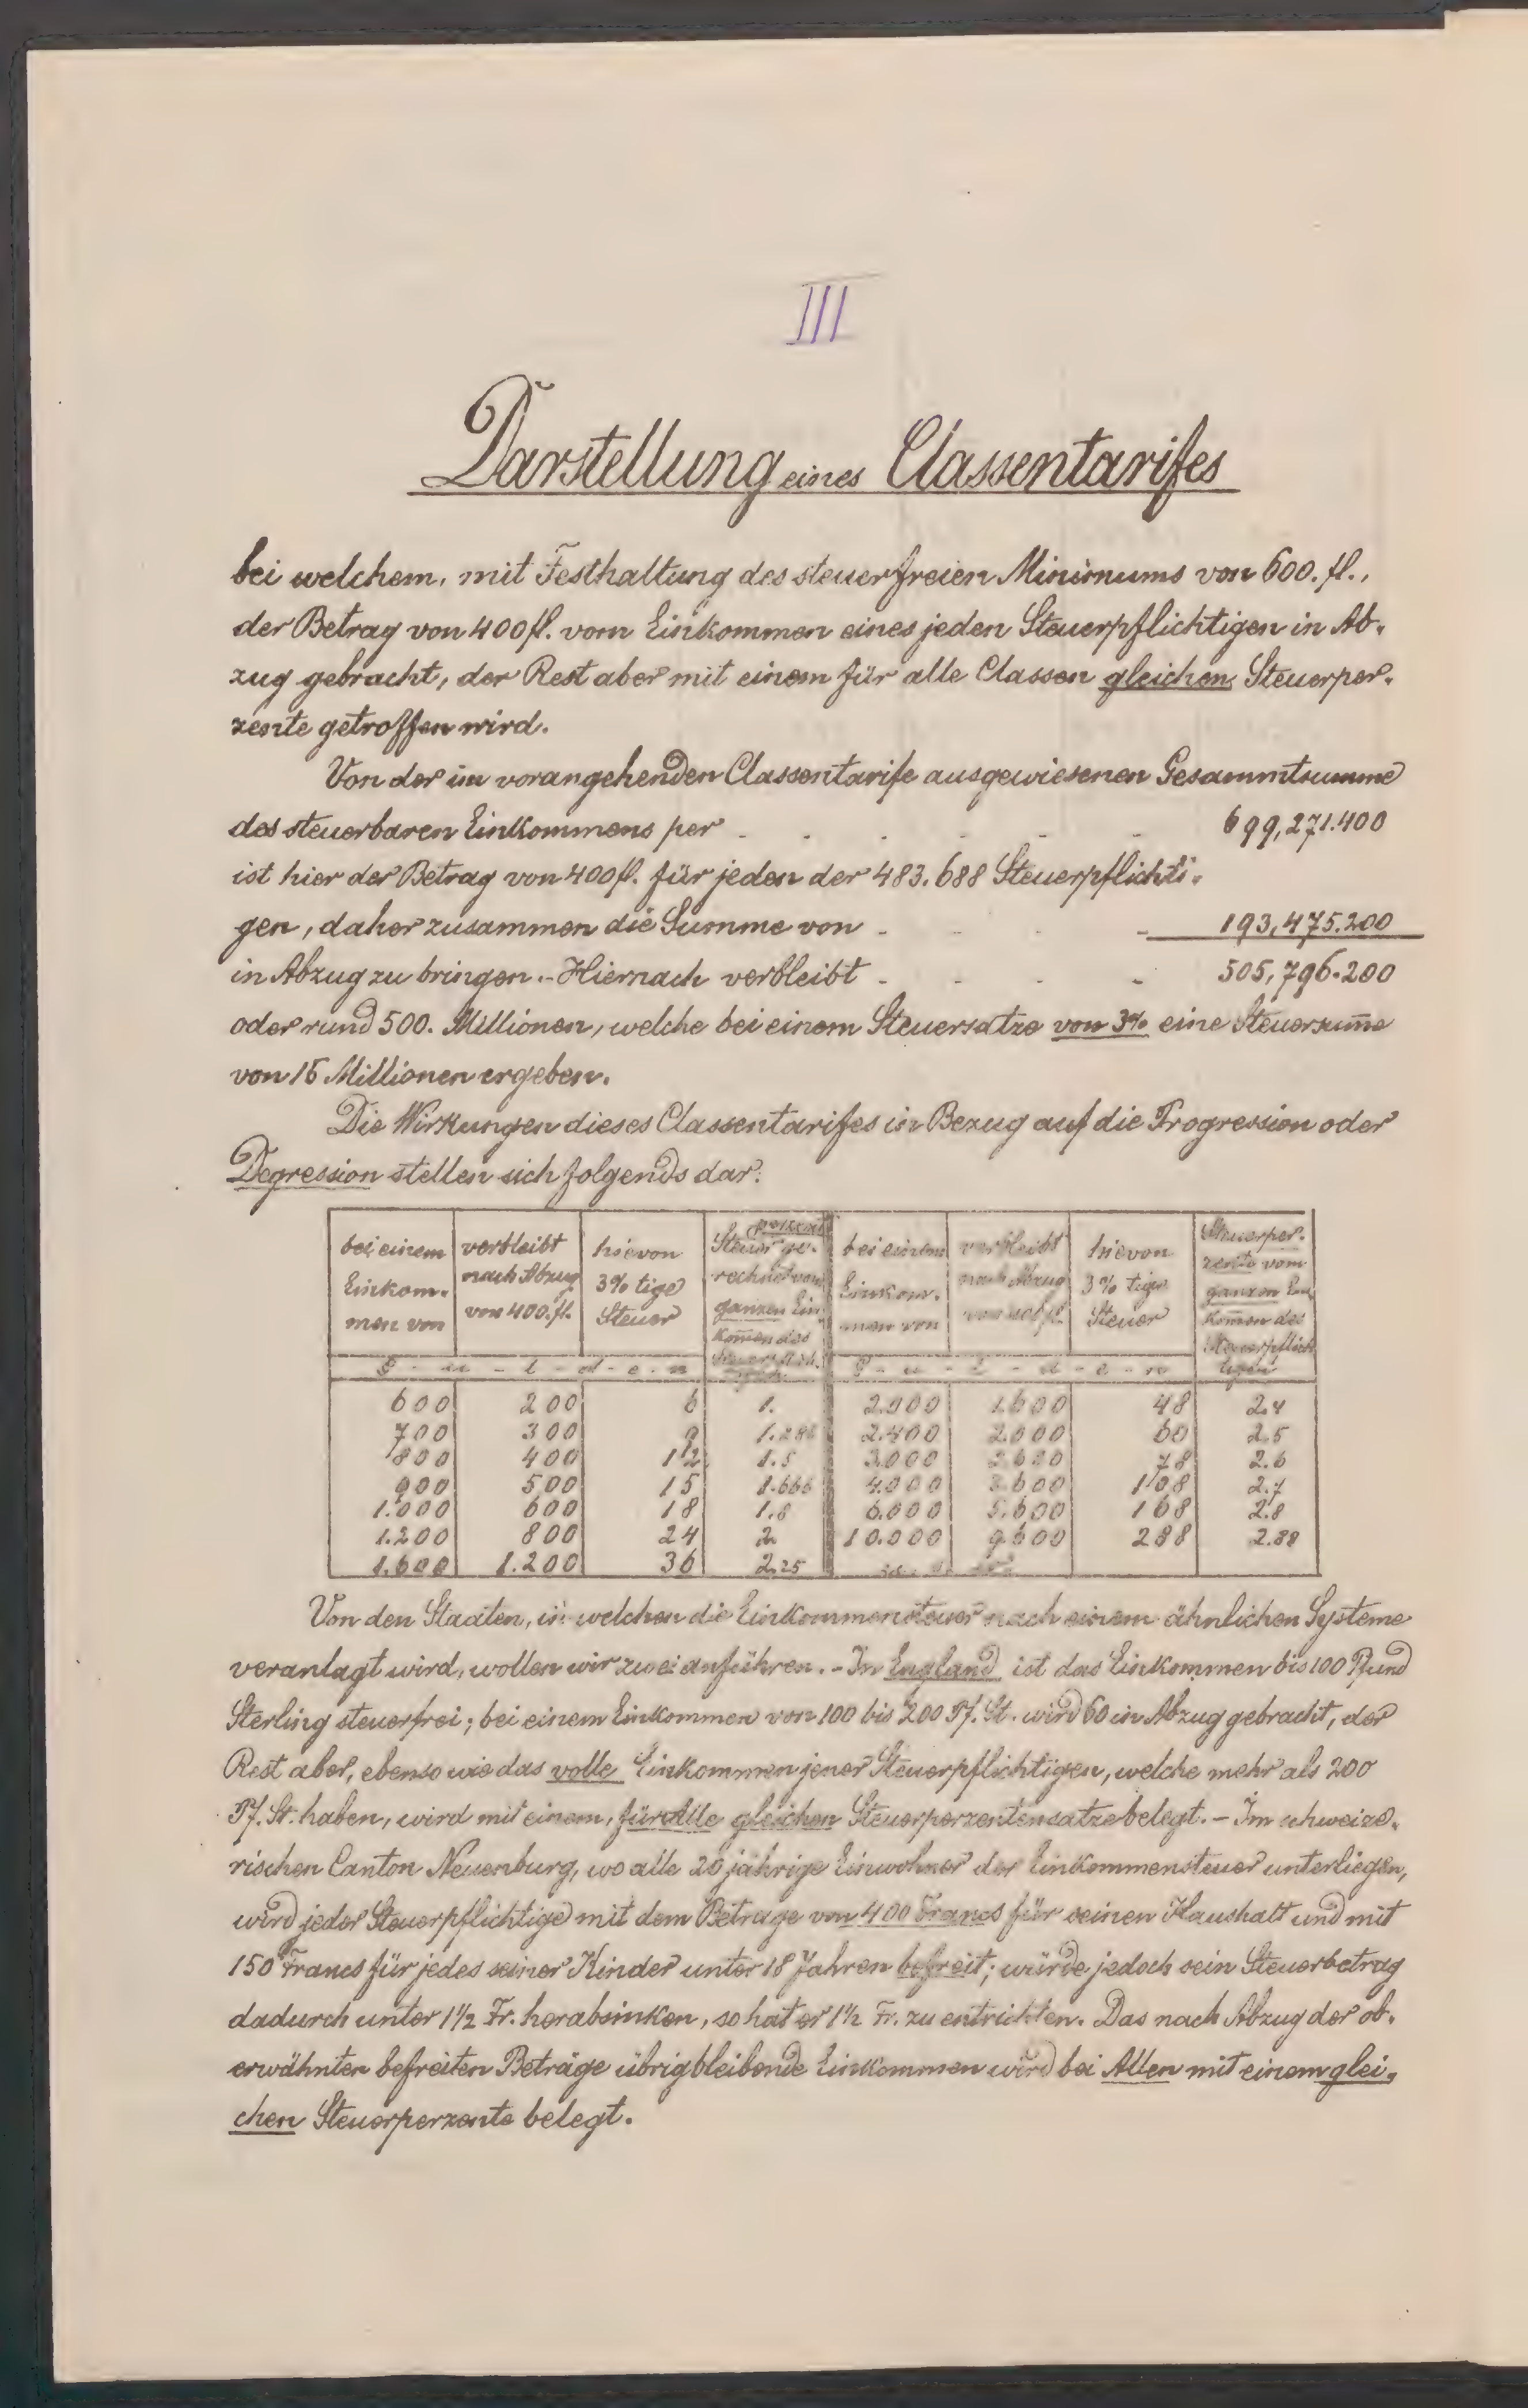 III
Darstellung eines Classentarifes
bei welchem, mit Festhaltung des steuerfreien Minimums von 600. fl.,
der Betrag von 400 fl. vom Einkommen eines jeden Steuerpflichtigen in Ab-
zug gebracht, der Rest aber mit einem für alle Classen gleichen Steuerper-
zente getroffen wird.
Von der im vorangehenden Classentarife ausgewiesenen Gesammtsumme
des steuerbaren Einkommens per - - - - - 699,271.400
ist hier der Betrag von 400 fl. für jeden der 483.688 Steuerpflichti-
gen, daher zusammen die Summe von - - - - 193,475.200
in Abzug zu bringen. - Hiernach verbleibt - - - - 505,796.200
oder rund 500. Millionen, welche bei einem Steuersatze von 3% eine Steuersum̄e
von 15 Millionen ergeben.
Die Wirkungen dieses Classentarifes in Bezug auf die Progression oder
Degression stellen sich folgends dar:
bei einem Einkom- men von | verbleibt nach Abzug von 400. fl. | hievon 3% tige Steuer | Steuer ge- rechnet vom ganzen Ein- kom̄en des | bei einem Einkom- men von | verbleibt nach Abzug von 400 fl. | hievon 3% tige Steuer | Steuerper- zente vom ganzen Ein- kom̄en des Steuerpflich- tigen
G - u - l - d - e - n | G - u - l - d - e - n
600 | 200 | 6 | 1. | 2.000 | 1.600 | 48 | 2.4
700 | 300 | 9 | 1.286 | 2.400 | 2.000 | 60 | 2.5
800 | 400 | 12 | 1.5 | 3.000 | 2.600 | 78 | 2.6
900 | 500 | 15 | 1.666 | 4.000 | 3.600 | 108 | 2.7
1.000 | 600 | 18 | 1.8 | 6.000 | 5.600 | 168 | 2.8
1.200 | 800 | 24 | 2. | 10.000 | 9.600 | 288 | 2.88
1.600 | 1.200 | 36 | 2.25
Von den Staaten, in welchen die Einkommensteuer nach einem ähnlichen Systeme
veranlagt wird, wollen wir zwei anführen. - In England ist das Einkommen bis 100 Pfund
Sterling steuerfrei; bei einem Einkommen von 100 bis 200 Pf. St. wird 60 in Abzug gebracht, der
Rest aber, ebenso wie das volle Einkommen jener Steuerpflichtigen, welche mehr als 200
Pf. St. haben, wird mit einem, für Alle gleichen Steuerperzentensatze belegt. - Im schweize-
rischen Canton Neuenburg, wo alle 20 jährige Einwohner der Einkommensteuer unterliegen,
wird jeder Steuerpflichtige mit dem Betrage von 400 Francs für seinen Haushalt und mit
150 Francs für jedes seiner Kinder unter 18 Jahren befreit; würde jedoch sein Steuerbetrag
dadurch unter 1½ Fr. herabsinken, so hat er 1½ Fr. zu entrichten. Das nach Abzug der ob-
erwähnten befreiten Beträge übrigbleibende Einkommen wird bei Allen mit einem glei-
chen Steuerperzente belegt.